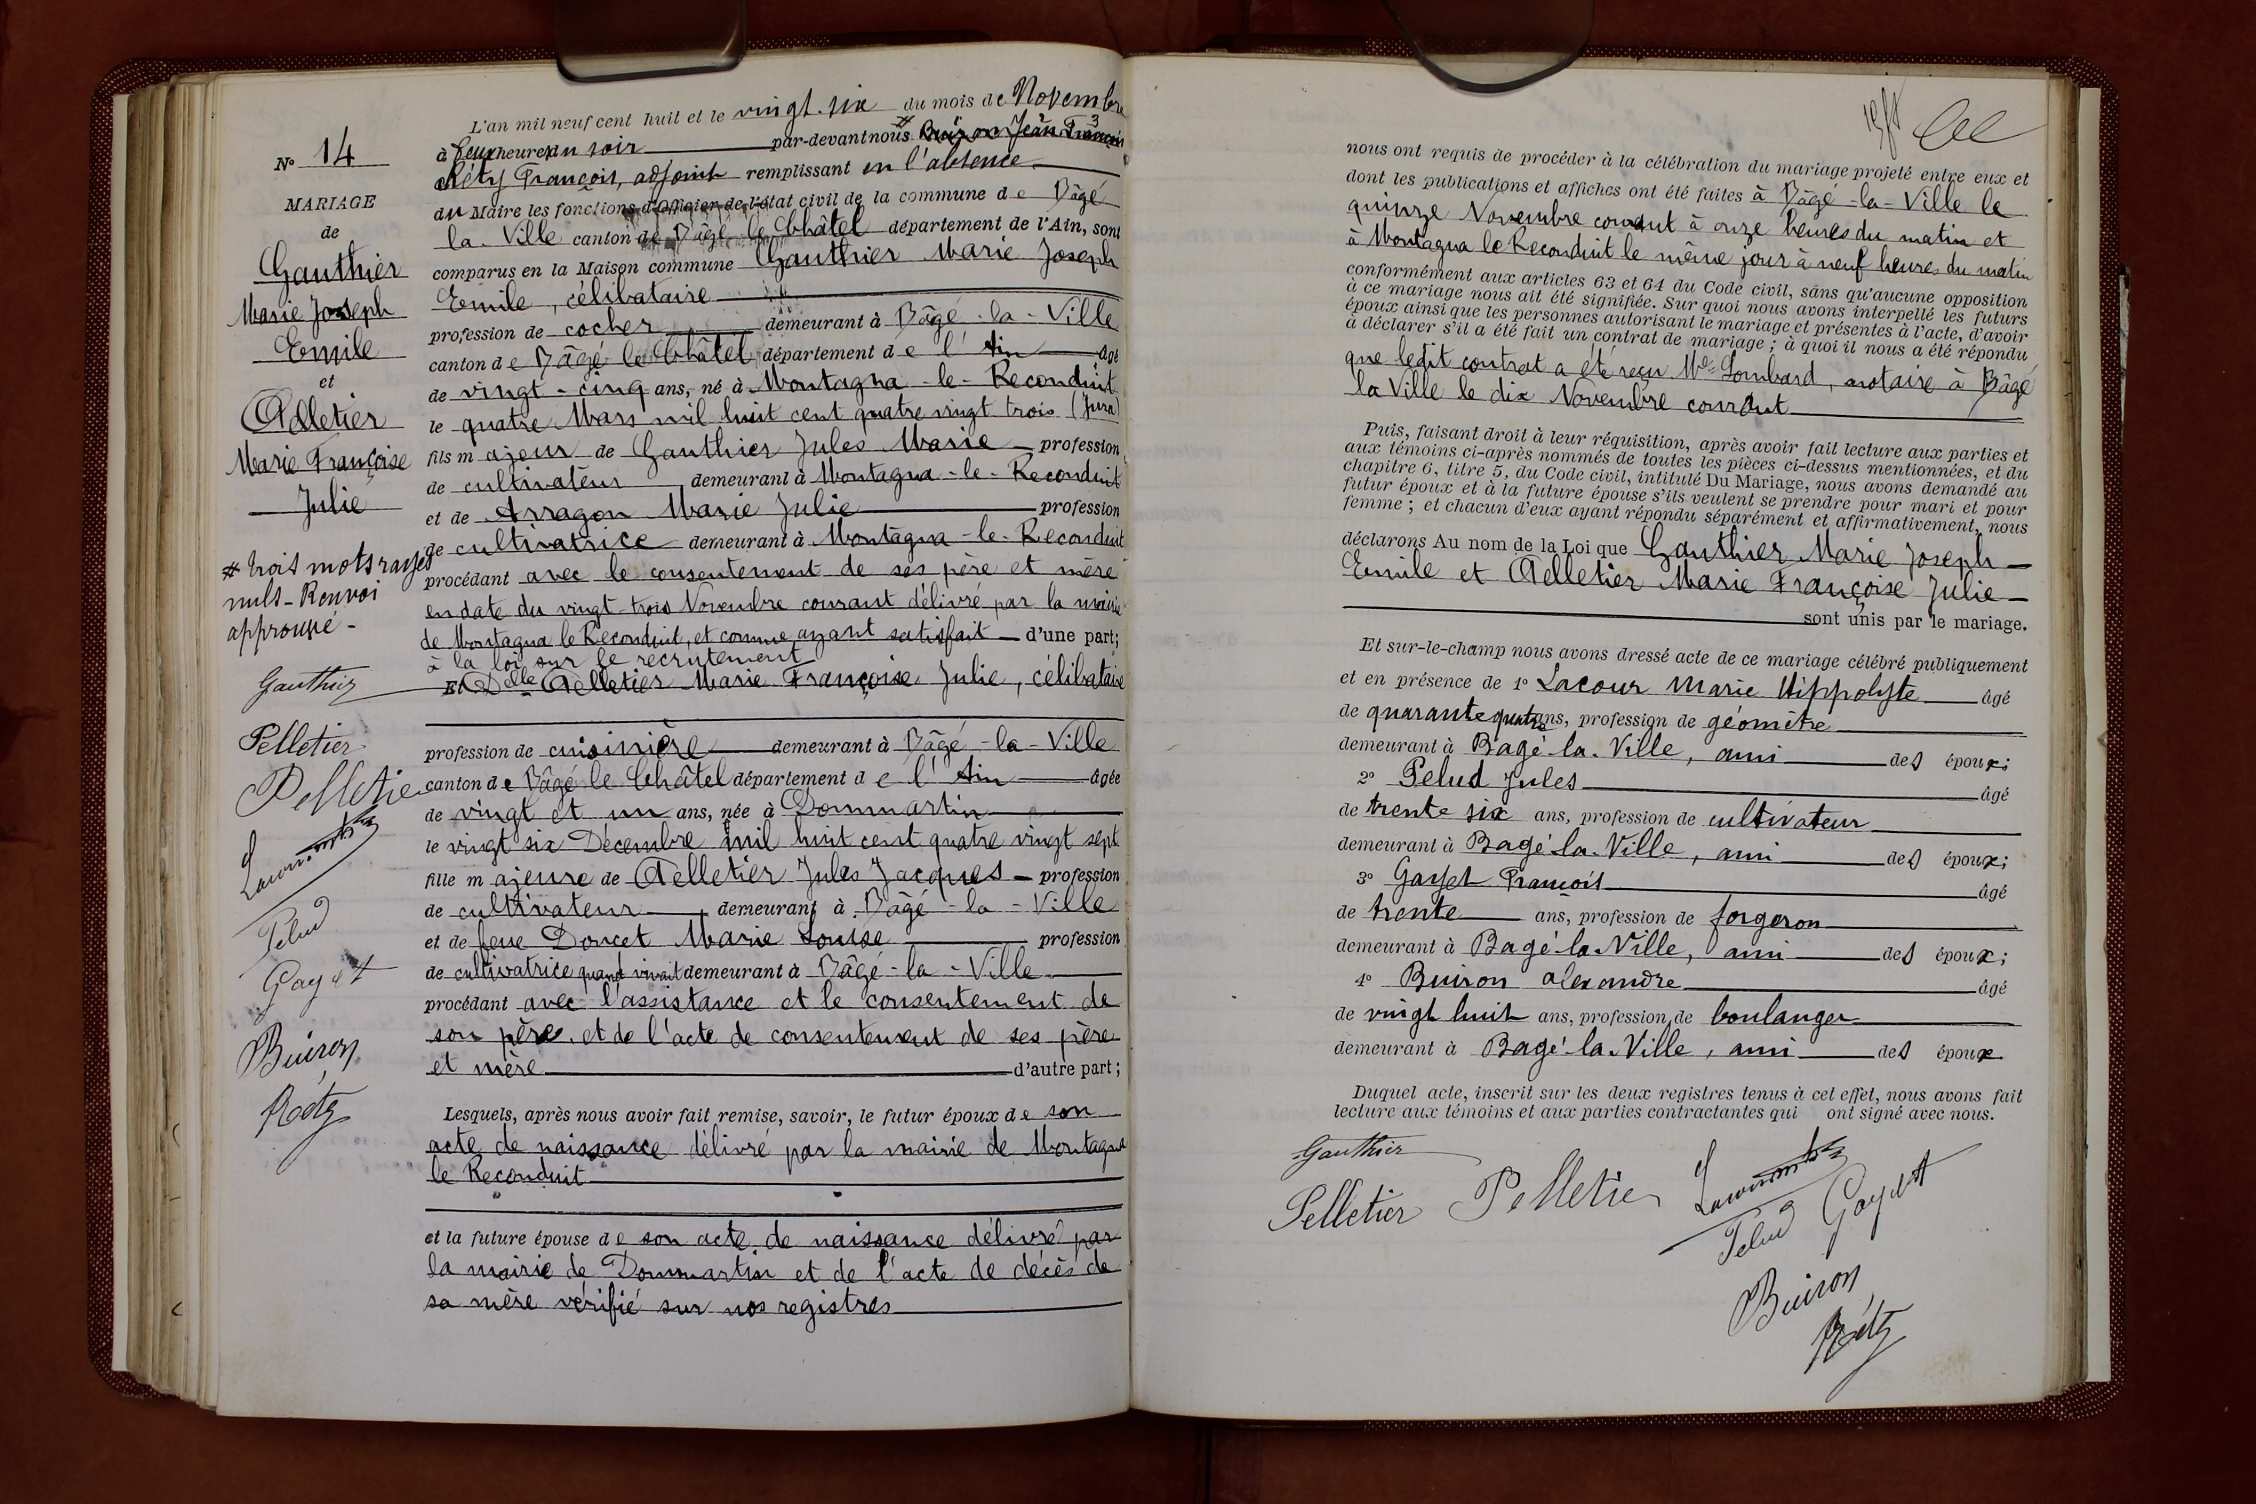 N° 14
MARIAGE
de
Gauthier
Marie Joseph
Emile
et
Pelletier
Marie Françoise
Julie
# trois mots rayés
nuls - Renvoi
approuvé -
Gauthier
Pelletier
Pelletier
Pelud
Gayet
Buiron
Réty
L'an mil neuf cent huit et le vingt-six du mois de Novembre
à deux heures du soir par-devant nous # Buiron Jean François
Réty François, adjoint remplissant en l'absence
du Maire les fonctions d'Officier de l'état civil de la commune de Bâgé
la-Ville canton de Bâgé le Châtel département de l'Ain, sont
comparus en la Maison commune Gauthier Marie Joseph
Emile, célibataire
profession de cocher demeurant à Bâgé-la-Ville
canton de Bâgé le Châtel département de l'Ain âgé
de vingt-cinq ans, né à Montagna-le-Reconduit
le quatre Mars mil huit cent quatre vingt trois (Jura)
fils majeur de Gauthier Jules Marie profession
de cultivateur demeurant à Montagna-le-Reconduit
et de Arragon Marie Julie profession
de cultivatrice demeurant à Montagna-le-Reconduit
procédant avec le consentement de ses père et mère
en date du vingt-trois Novembre courant délivré par la mairie
de Montagna le Reconduit, et comme ayant satisfait d'une part;
à la loi sur le recrutement
Et Delle Pelletier Marie Françoise Julie, célibataire
profession de cuisinière demeurant à Bâgé-la-Ville
canton de Bâgé le Châtel département de l'Ain âgée
de vingt et un ans, née à Dommartin
le vingt six Décembre mil huit cent quatre vingt sept
fille majeure de Pelletier Jules Jacques profession
de cultivateur, demeurant à Bâgé-la-Ville
et de feue Doucet Marie Louise profession
de cultivatrice quand vivait demeurant à Bâgé-la-Ville
procédant avec l'assistance et le consentement de
son père et de l'acte de consentement de ses père
et mère d'autre part;
Lesquels, après nous avoir fait remise, savoir, le futur époux de son
acte de naissance délivré par la mairie de Montagna
le Reconduit
et la future épouse de son acte de naissance délivré par
la mairie de Dommartin et de l'acte de décès de
sa mère vérifié sur nos registres
nous ont requis de procéder à la célébration du mariage projeté entre eux et
dont les publications et affiches ont été faites à Bâgé-la-Ville le
quinze Novembre courant à onze heures du matin et
à Montagna le Reconduit le même jour à neuf heures du matin
conformément aux articles 63 et 64 du Code civil, sans qu'aucune opposition
à ce mariage nous ait été signifiée. Sur quoi nous avons interpellé les futurs
époux ainsi que les personnes autorisant le mariage et présentes à l'acte, d'avoir
à déclarer s'il a été fait un contrat de mariage; à quoi il nous a été répondu
que ledit contrat a été reçu Me Lombard, notaire à Bâgé
la Ville le dix Novembre courant
Puis, faisant droit à leur réquisition, après avoir fait lecture aux parties et
aux témoins ci-après nommés de toutes les pièces ci-dessus mentionnées, et du
chapitre 6, titre 5, du Code civil, intitulé Du Mariage, nous avons demandé au
futur époux et à la future épouse s'ils veulent se prendre pour mari et pour
femme; et chacun d'eux ayant répondu séparément et affirmativement, nous
déclarons Au nom de la Loi que Gauthier Marie Joseph
Emile et Pelletier Marie Françoise Julie
sont unis par le mariage.
Et sur-le-champ nous avons dressé acte de ce mariage célébré publiquement
et en présence de 1° Lacour Marie Hippolyte âgé
de quarante quatre ans, profession de géomètre
demeurant à Bagé-la-Ville, ami des époux;
2° Pelud Jules âgé
de trente six ans, profession de cultivateur
demeurant à Bagé-la-Ville, ami des époux;
3° Gayet François âgé
de trente ans, profession de forgeron
demeurant à Bagé-la-Ville, ami des époux;
4° Buiron alexandre âgé
de vingt huit ans, profession de boulanger
demeurant à Bagé-la-Ville, ami des époux
Duquel acte, inscrit sur les deux registres tenus à cet effet, nous avons fait
lecture aux témoins et aux parties contractantes qui ont signé avec nous.
Gauthier
Pelletier Pelletier
Pelud Gayet
Buiron
Réty